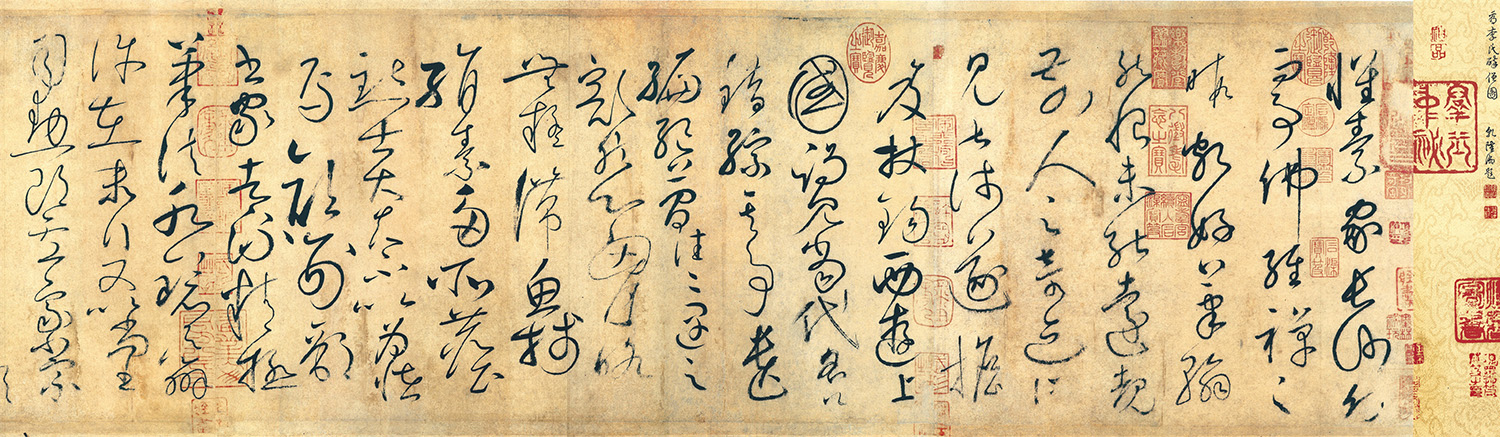 懷素家長沙幼
而事佛經禪之
暇頗好筆翰
然恨未能遠覩
前人之奇迹所
見甚淺遂擔
笈杖錫西遊上
國謁見當代名公
錯綜其事遺
編絕簡往往遇之
豁然心胸略
無疑滯魚牋
絹素多所塵
點士大夫不以為怪
焉顏刑部
書家者流精極
筆法水鏡之辨
許在末行又以尚書
司勳郎盧象小宗
嘉慶御覽之寶